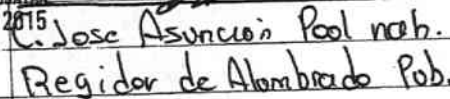 2015
C. Jose Asuncion Pool nah.
Regidor de Alombrado Pob.